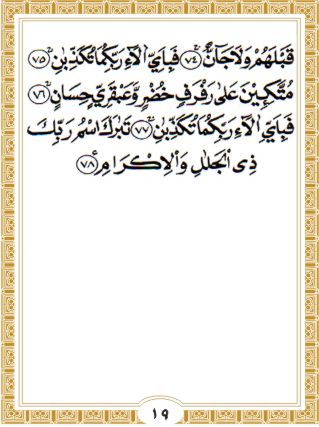 قَبْلَهُمْ وَلَا جَآنٌّ ۚ ﴿٧٤﴾ فَبِاَيِّ اٰلَآءِ رَبِّكُمَا تُكَذِّبٰنِ ۚ ﴿٧٥﴾
مُتَّكِـِٕيْنَ عَلٰى رَفْرَفٍ خُضْرٍ وَّعَبْقَرِيٍّ حِسَانٍ ۚ ﴿٧٦﴾
فَبِاَيِّ اٰلَآءِ رَبِّكُمَا تُكَذِّبٰنِ ۚ ﴿٧٧﴾ تَبٰرَكَ اسْمُ رَبِّكَ
ذِى الْجَلٰلِ وَالْاِكْرَامِ ۧ ﴿٧٨﴾
١٩